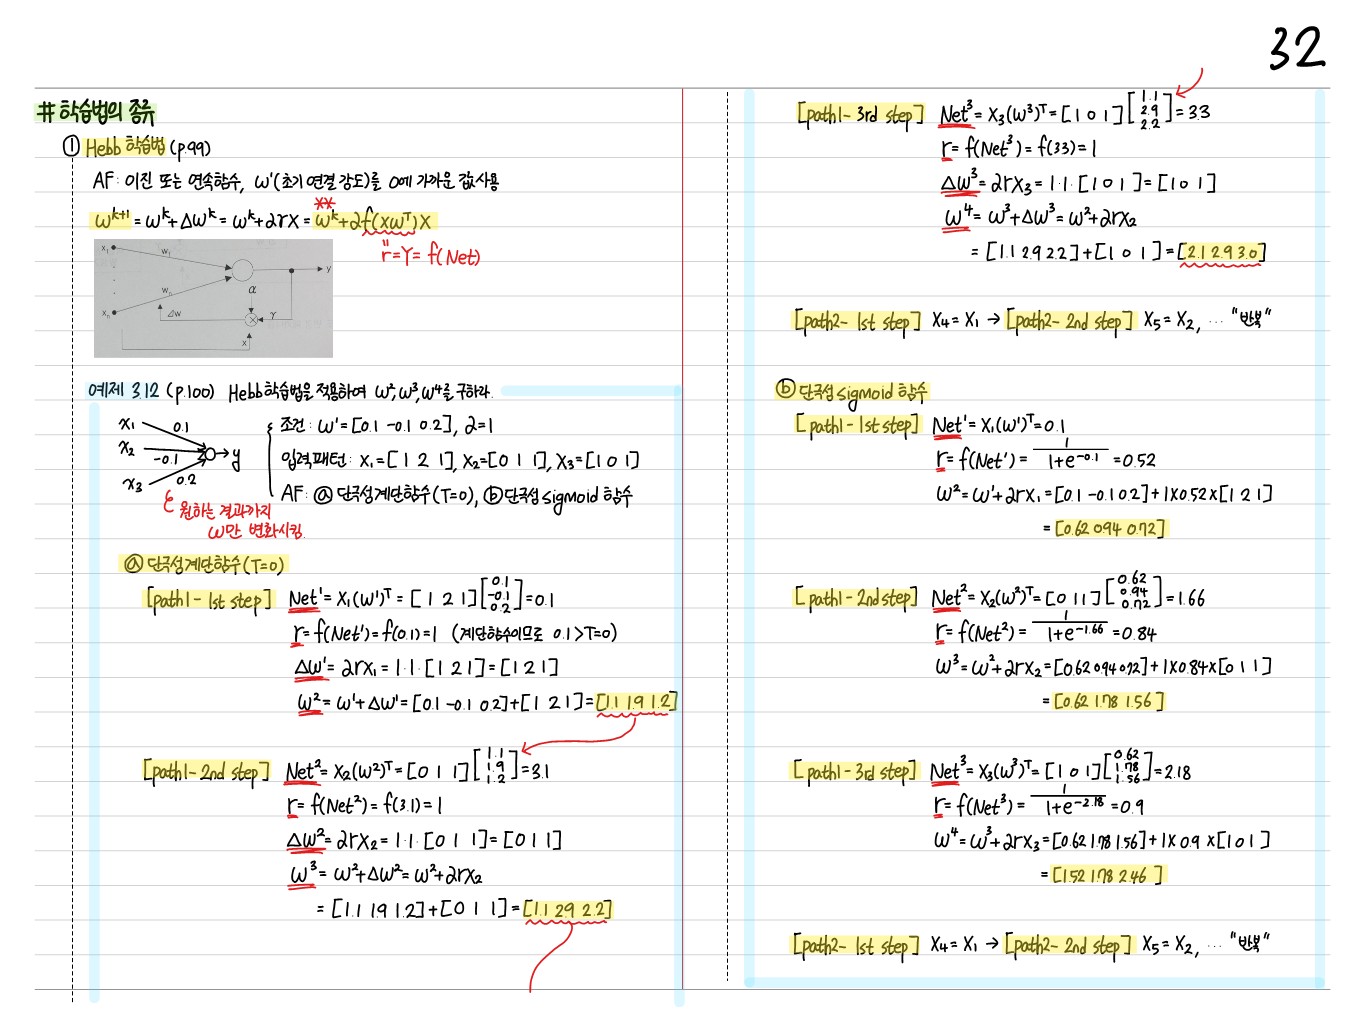 32
# 학습법의 종류
① Hebb 학습법 (p.99)
AF: 이진 또는 연속함수, w¹(초기 연결 강도)를 0에 가까운 값 사용
**
wᵏ⁺¹ = wᵏ+Δwᵏ = wᵏ+αrX = wᵏ+αf(XWᵀ)X
" r=Y= f(Net)
x₁ w₁ y
α
wₙ
xₙ Δw γ
x
예제 3.12 (p.100) Hebb학습법을 적용하여 w², w³, w⁴를 구하라.
x₁ 0.1
x₂ -0.1 y
x₃ 0.2
조건: w¹=[0.1 -0.1 0.2], α=1
입력패턴: X₁=[1 2 1], X₂=[0 1 1], X₃=[1 0 1]
AF: ⓐ 단극성계단함수(T=0), ⓑ단극성 sigmoid 함수
원하는 결과까지
w만 변화시킴.
ⓐ 단극성계단함수(T=0)
[path1-1st step] Net¹= X₁(w¹)ᵀ= [1 2 1][0.1 -0.1 0.2]=0.1
r= f(Net¹)= f(0.1)=1 (계단함수이므로 0.1>T=0)
Δw¹= αrX₁ = 1·1·[1 2 1]=[1 2 1]
w²= w¹+Δw¹=[0.1 -0.1 0.2]+[1 2 1]=[1.1 1.9 1.2]
[path1-2nd step] Net²= X₂(w²)ᵀ=[0 1 1][1.1 1.9 1.2]=3.1
r= f(Net²)= f(3.1)=1
Δw²= αrX₂= 1·1·[0 1 1]=[0 1 1]
w³= w²+Δw²= w²+αrX₂
= [1.1 1.9 1.2]+[0 1 1]=[1.1 2.9 2.2]
[path1-3rd step] Net³= X₃(w³)ᵀ=[1 0 1][1.1 2.9 2.2]=3.3
r= f(Net³)= f(3.3)=1
Δw³= αrX₃=1·1·[1 0 1]=[1 0 1]
w⁴= w³+Δw³= w²+αrX₂
= [1.1 2.9 2.2]+[1 0 1]=[2.1 2.9 3.0]
[path2-1st step] X₄=X₁ → [path2-2nd step] X₅=X₂, ... "반복"
ⓑ 단극성 sigmoid 함수
[path1-1st step] Net¹= X₁(w¹)ᵀ=0.1
r= f(Net¹)= 1/(1+e⁻⁰·¹)=0.52
w²= w¹+αrX₁=[0.1 -0.1 0.2]+1×0.52×[1 2 1]
= [0.62 0.94 0.72]
[path1-2nd step] Net²= X₂(w²)ᵀ=[0 1 1][0.62 0.94 0.72]=1.66
r= f(Net²)= 1/(1+e⁻¹·⁶⁶)=0.84
w³= w²+αrX₂=[0.62 0.94 0.72]+1×0.84×[0 1 1]
= [0.62 1.78 1.56]
[path1-3rd step] Net³= X₃(w³)ᵀ=[1 0 1][0.62 1.78 1.56]=2.18
r= f(Net³)= 1/(1+e⁻²·¹⁸)=0.9
w⁴= w³+αrX₃=[0.62 1.78 1.56]+1×0.9×[1 0 1]
= [1.52 1.78 2.46]
[path2-1st step] X₄=X₁ → [path2-2nd step] X₅=X₂, ... "반복"